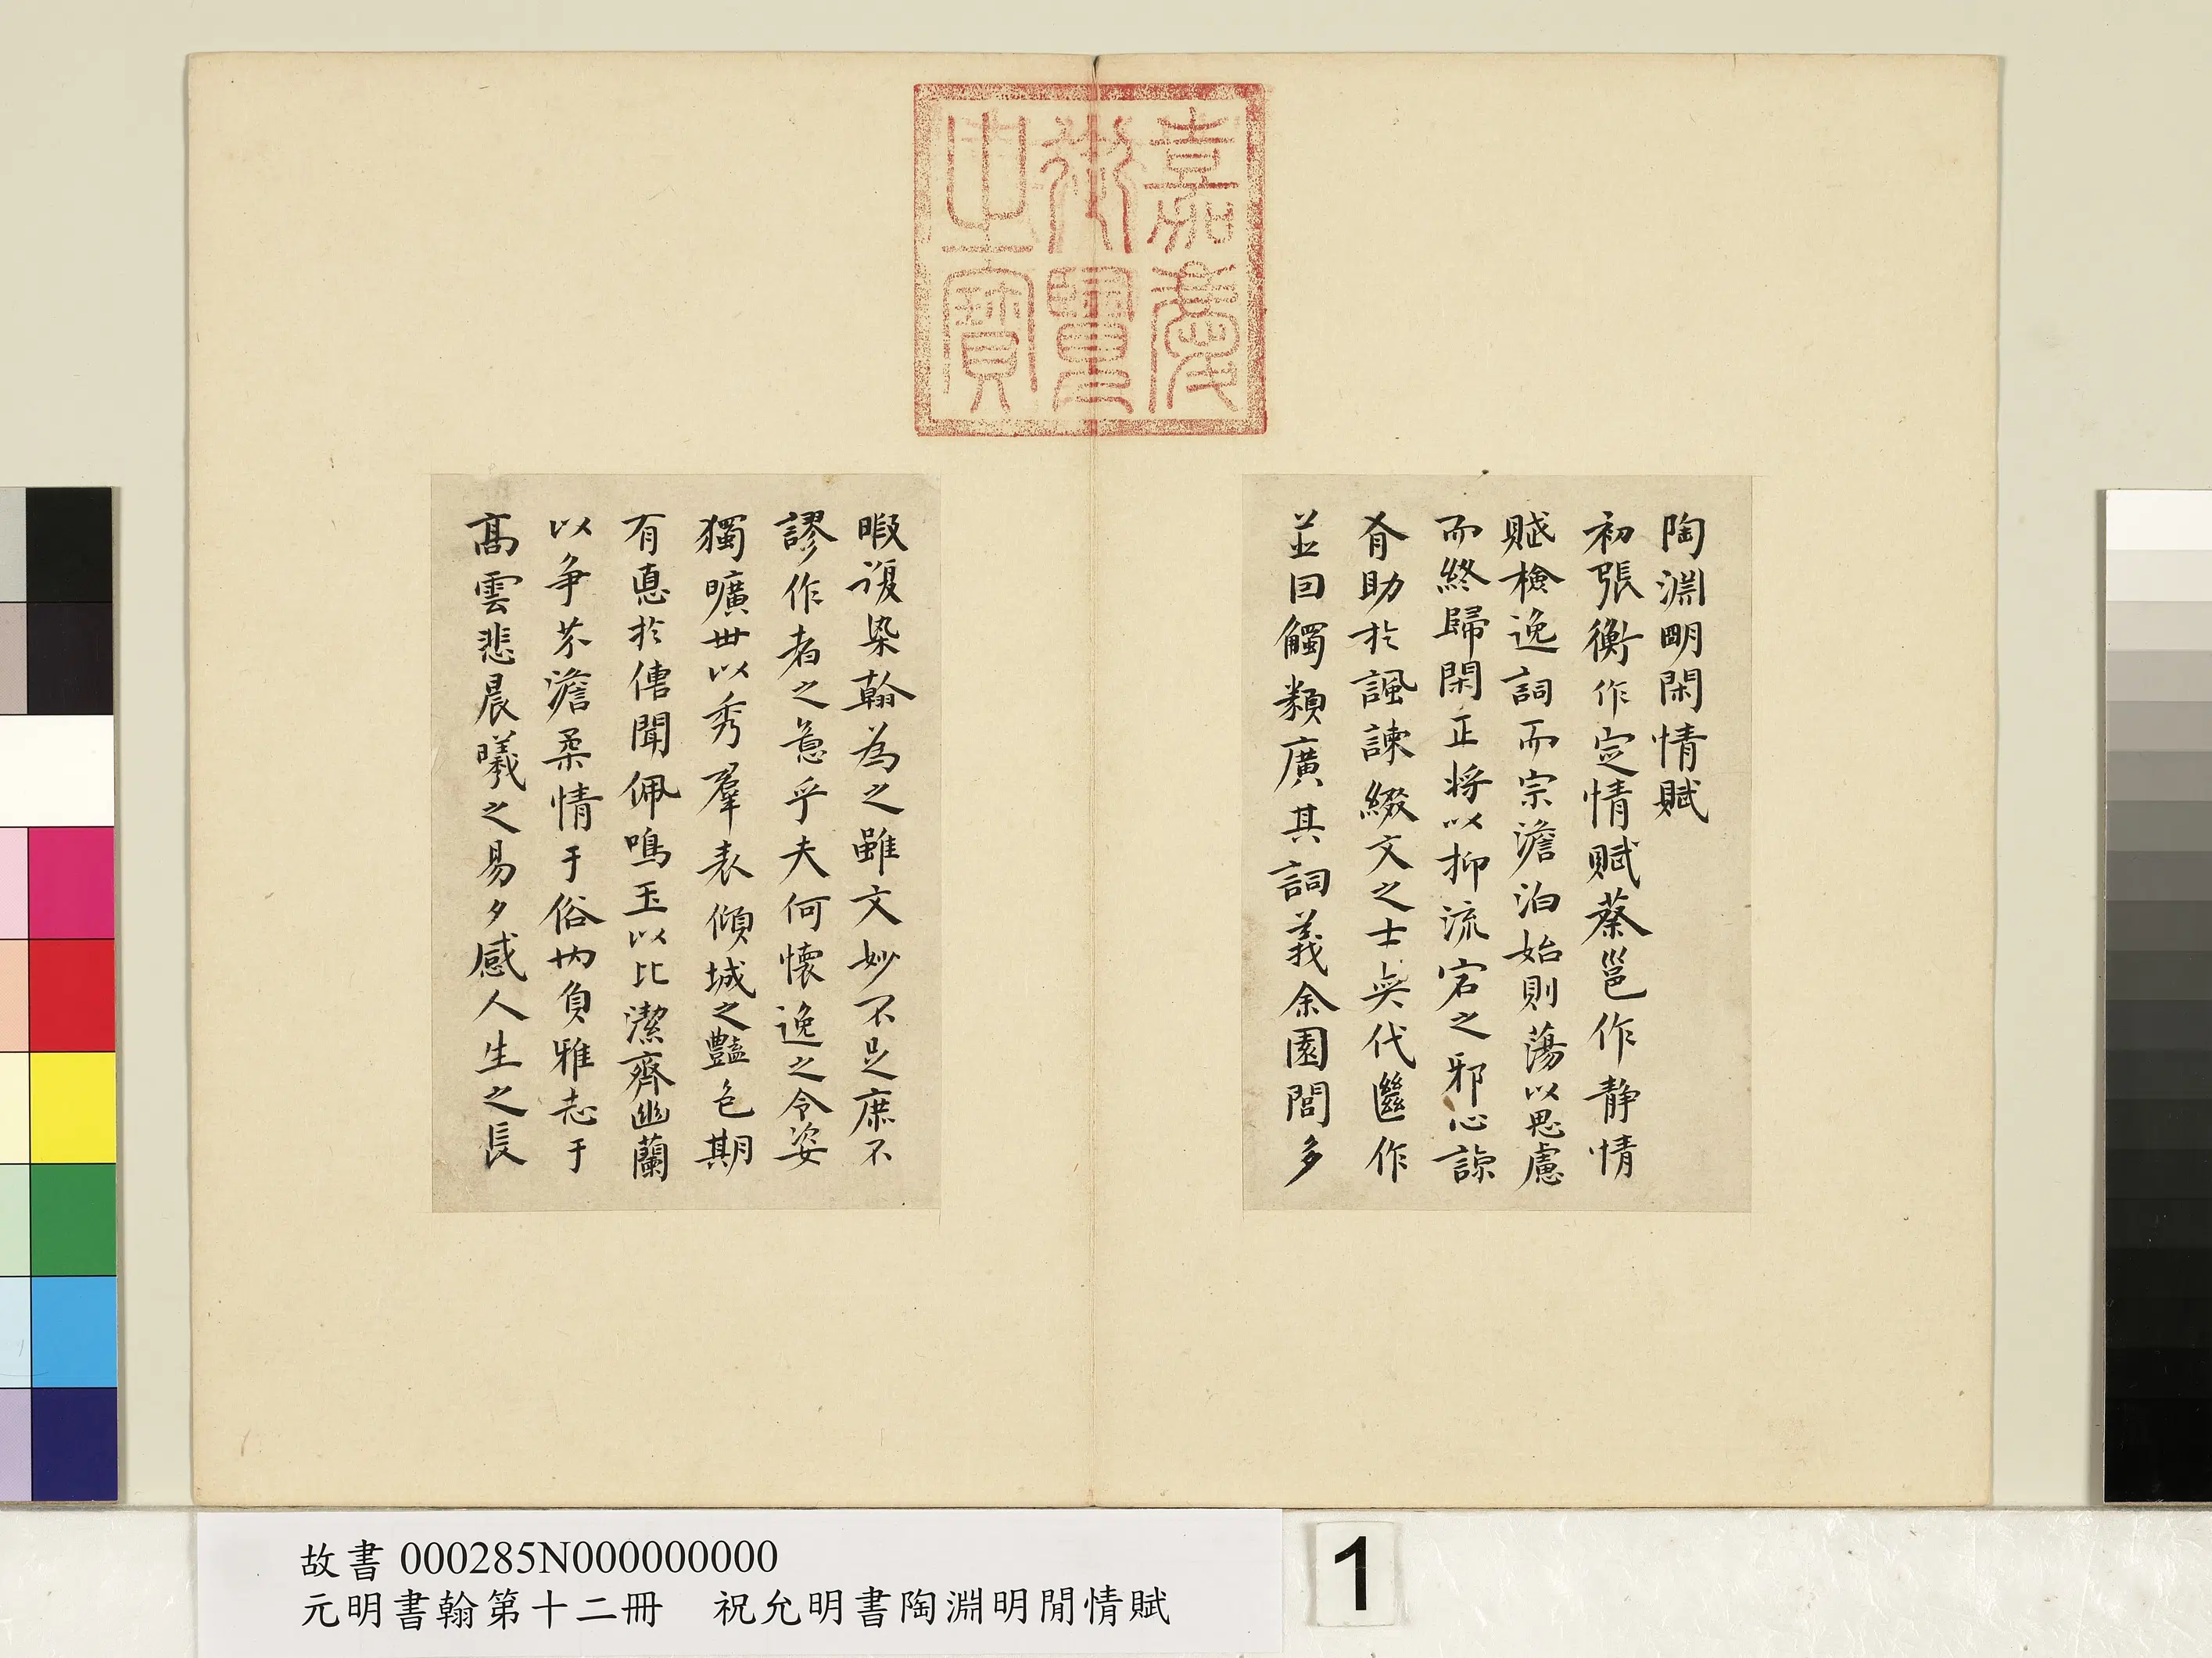 嘉慶
御覽
之寶
陶淵明閑情賦
初張衡作定情賦蔡邕作静情
賦檢逸詞而宗澹泊始則蕩以思慮
而終歸閑正將以抑流宕之邪心諒
有助於諷諫綴文之士奕代繼作
並因觸類廣其詞義余園閭多
暇復染翰為之雖文妙不足庶不
謬作者之意乎夫何懷逸之令姿
獨曠世以秀羣表傾城之豔色期
有悳於傳聞佩鳴玉以比潔齊幽蘭
以争芬澹柔情于俗內負雅志于
高雲悲晨曦之易夕感人生之長
故書000285N000000000
元明書翰第十二冊 祝允明書陶淵明閒情賦
1